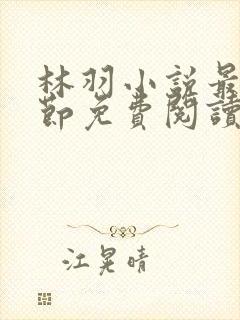 林羽小説最
節免費閱讀
江晃晴